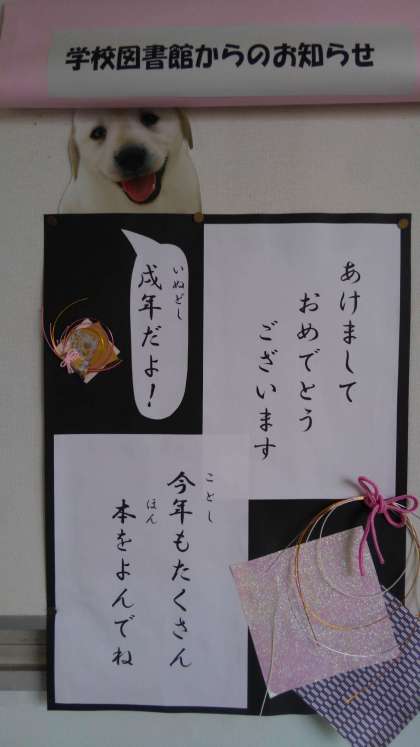 学校図書館からのお知らせ
あけまして
おめでとう
ございます
いぬどし
戌年だよ！
ことし
今年もたくさん
ほん
本をよんでね